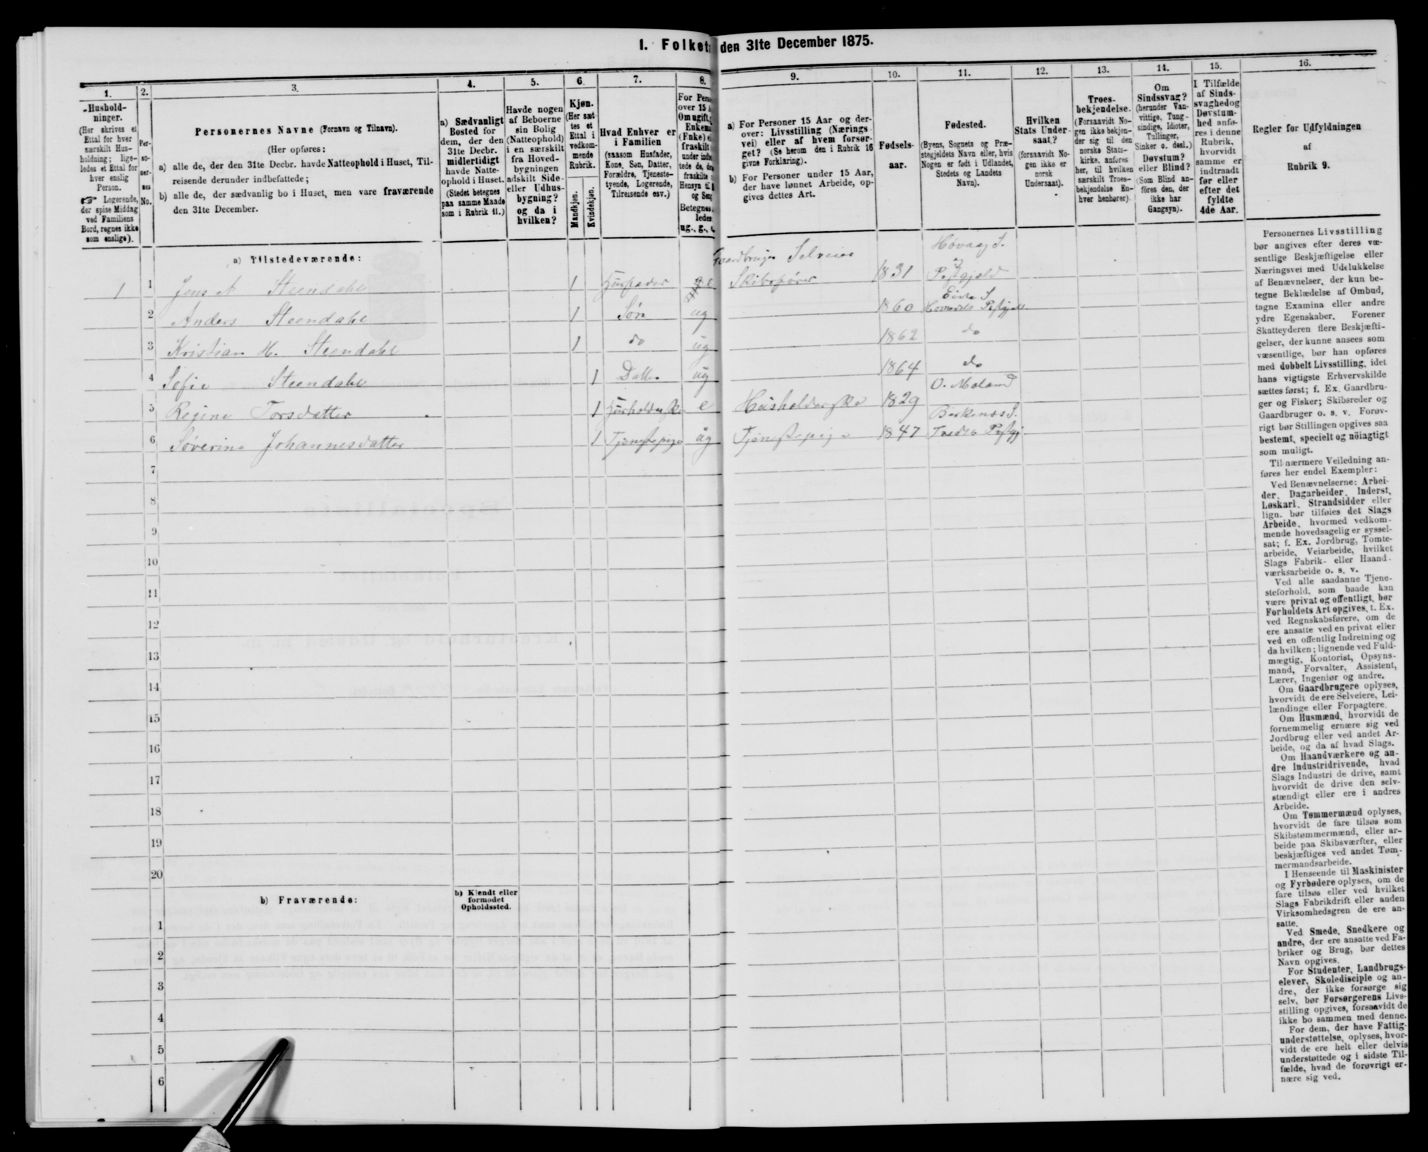 I. Folket
den 31te December 1875.
1.
2.
3.
4.
5.
6.
7.
8.
9.
10.
11.
12.
13.
14.
15.
16.
Hushold-
ninger.
(Her skrives et
Ettal for hver
særskilt Hus-
holdning; lige-
ledes et Ettal for
hver enslig
Person.
☞ Logerende,
der spise Middag
ved Familiens
Bord, regnes ikke
som enslige).
Per-
so-
ner-
nes
No.
Personernes Navne (Fornavn og Tilnavn).
(Her opføres:
a) alle de, der den 31te Decbr. havde Natteophold i Huset, Til-
reisende derunder indbefattede;
b) alle de, der sædvanlig bo i Huset, men vare fraværende
den 31te December.
a) Sædvanligt
Bosted for
dem, der den
31te Decbr.
midlertidigt
havde Natte-
ophold i Huset.
(Stedet betegnes
paa samme Maade
som i Rubrik 11.)
Havde nogen
af Beboerne
sin Bolig
(Natteophold)
i en særskilt
fra Hoved-
bygningen
adskilt Side-
eller Udhus-
bygning?
og da i
hvilken?
Kjøn.
(Her sæt
tes et
Ettal i
vedkom-
mende
Rubrik.
Mandkjøn.
Kvindekjøn.
Hvad Enhver er
i Familien
(saasom Husfader,
Kone, Søn, Datter,
Forældre, Tjeneste-
tyende, Logerende,
Tilreisende osv.)
For Perso
over 15 A
Om ugift, g
Enkema
(Enke) e
fraskilt
a) For Personer 15 Aar og der-
over: Livsstilling (Nærings-
vei) eller af hvem forsør-
get? (Se herom den i Rubrik 16
givne Forklaring).
b) For Personer under 15 Aar,
der have lønnet Arbeide, op-
gives dettes Art.
Fødsels-
aar.
Fødested.
(Byens, Sognets og Præ-
stegjeldets Navn eller, hvis
Nogen er født i Udlandet,
Stedets og Landets
Navn).
Hvilken
Stats Under-
saat?
(forsaavidt No-
gen ikke er
norsk
Undersaat).
Troes-
bekjendelse.
(Forsaavidt No-
gen ikke bekjen-
der sig til den
norske Stats-
kirke, anføres
her, til hvilken
særskilt Troes-
bekjendelse En-
hver henhører).
Om
Sindssvag?
(herunder Van-
vittige, Tung-
sindige, Idioter,
Tullinger,
Sinker o. desl.)
Døvstum?
eller Blind?
(Som Blind an-
føres den, der
ikke har
Gangsyn).
I Tilfælde
af Sinds-
svaghedog
Døvstum-
hed anfø-
res i denne
Rubrik,
hvorvidt
samme er
indtraadt
før eller
efter det
fyldte
4de Aar.
Regler for Udfyldningen
af
Rubrik 9.
a) Tilstedeværende:
1 1 Jens A Steendahl 1 Husfader e Gaardbruger Selveier Skibsfører 1831 Hovaag S. Pstgjeld
2 Anders Steendahl 1 Søn ug 1860 Eide S
3 Kristian M. Steendahl 1 do ug 1862 do
4 Sofie Steendahl 1 Datter ug 1864 do
5 Regine Torsdatter 1 e Husholderske 1829 O. Moland
6 Søverine Johannesdatter 1 Tjenestepige ug Tjenestepige 1847 Birkenæs S.
7
8
9
10
11
12
13
14
15
16
17
18
19
20
b) Fraværende:
b) Kjendt eller
formodet
Opholdssted.
1
2
3
4
5
6
Personernes Livsstilling
bør angives efter deres væ-
sentlige Beskjæftigelse eller
Næringsvei med Udelukkelse
af Benævnelser, der kun be-
tegne Bekladelse af Ombud,
tagne Examina eller andre
ydre Egenskaber. Forener
Skatteyderen flere Beskjæfti-
gelser, der kunne ansees som
væsentlige, bør han opføres
med dobbelt Livsstilling, idet
hans vigtigste Erhvervskilde
sættes først; f. Ex. Gaardbru-
ger og Fisker; Skibsreder og
Gaardbruger o. s. v. Forøv-
rigt bør Stillingen opgives saa
bestemt, specielt og nöiagtigt
som muligt.
Til nærmere Veiledning an-
føres her endel Exempler:
Ved Benævnelserne: Arbei-
der, Dagarbeider, Inderst,
Løskarl, Strandsidder eller
lign. bør tilføies det Slags
Arbeide, hvormed vedkom-
mende hovedsagelig er syssel-
sat; f. Ex. Jordbrug, Tomte-
arbeide, Veiarbeide, hvilket
Slags Fabrik- eller Haand-
værksarbeide o. s. v.
Ved alle saadanne Tjene-
steforhold, som baade kan
være privat og offentligt, bør
Forholdets Art opgives, t. Ex.
ved Regnskabsførere, om de
ere ansatte ved en privat eller
ved en offentlig Indretning og
da hvilken; lignende ved Fuld-
mægtig, Kontorist, Opsyns-
mand, Forvalter, Assistent,
Lærer, Ingeniør og andre.
Om Gaardbrugere oplyses,
hvorvidt de ere Selveiere, Lei-
lændinge eller Forpagtere.
Om Husmænd, hvorvidt de
fornemmelig ernære sig ved
Jordbrug eller ved andet Ar-
beide, og da af hvad Slags.
Om Haandværkere og an-
dre Industridrivende, hvad
Slags Industri de drive, samt
hvorvidt de drive den selv-
stændigt eller ere i andres
Arbeide.
Om Tømmermænd oplyses,
hvorvidt de fare tilsøs som
Skibstømmermænd, eller ar-
beide paa Skibsværfter, eller
beskjæftiges ved andet Tøm-
mermandsarbeide.
I Henseende til Maskinister
og Fyrbødere oplyses, om de
fare tilsøs eller ved hvilket
Slags Fabrikdrift eller anden
Virksomhedsgren de ere an-
satte.
Ved Smede, Snedkere og
andre, der ere ansatte ved Fa-
briker og Brug, bør dettes
Navn opgives.
For Studenter, Landbrugs-
elever, Skoledisciple og an-
dre, der ikke forsørge sig
selv, bør Forsørgerens Livs-
stilling opgives, forsaavidt de
ikke bo sammen med denne.
For dem, der have Fattig-
understøttelse, oplyses, hvor-
vidt de ere helt eller delvis
understøttede og i sidste Til-
fælde, hvad de forøvrigt er-
nære sig ved.